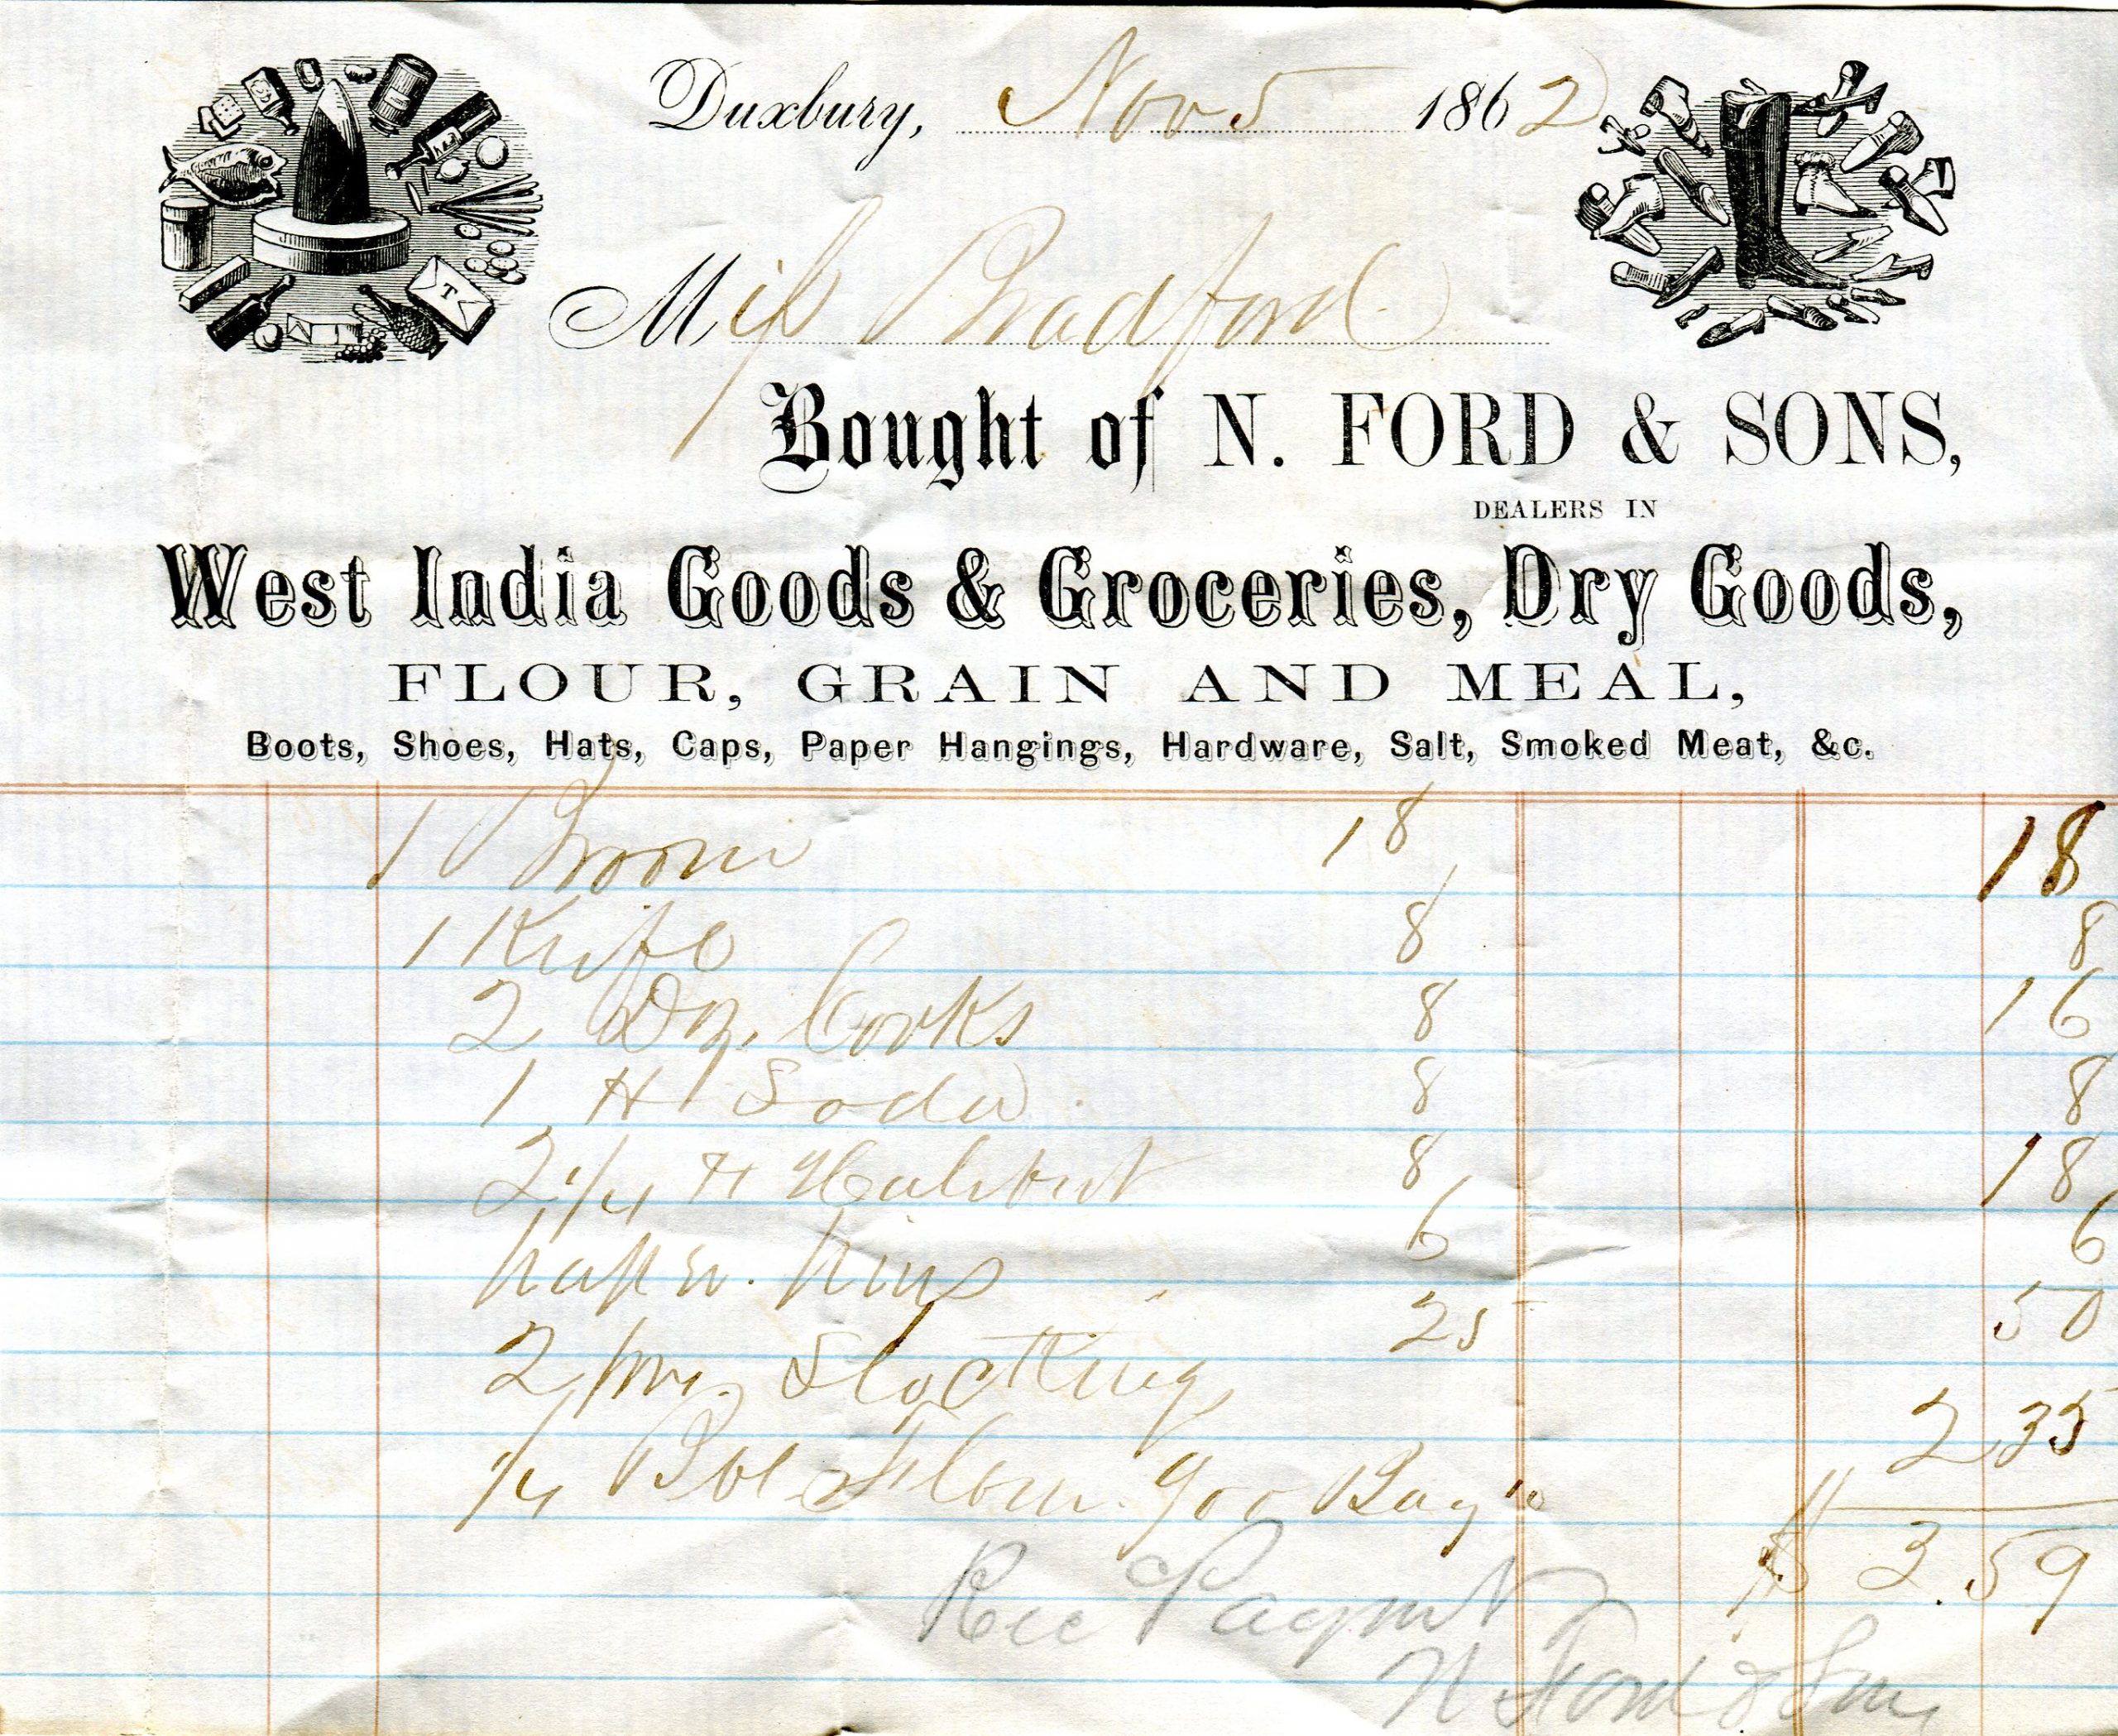 Duxbury, Nov 5 1862
Miss Bradford
Bought of N. FORD & SONS,
DEALERS IN
West India Goods & Groceries, Dry Goods,
FLOUR, GRAIN AND MEAL,
Boots, Shoes, Hats, Caps, Paper Hangings, Hardware, Salt, Smoked Meat, &c.
1 Broom 18 18
1 Knife 8 8
2 Doz. Corks 8 16
1 lb Soda 8 8
2 1/4 lb Halibut 8 18
6 6
2 pr. Stocking 25 50
1/4 Bbl Flour 900 Bag 10 2 35
$ 3.59
Rec Paymt
N Ford & Sons
T